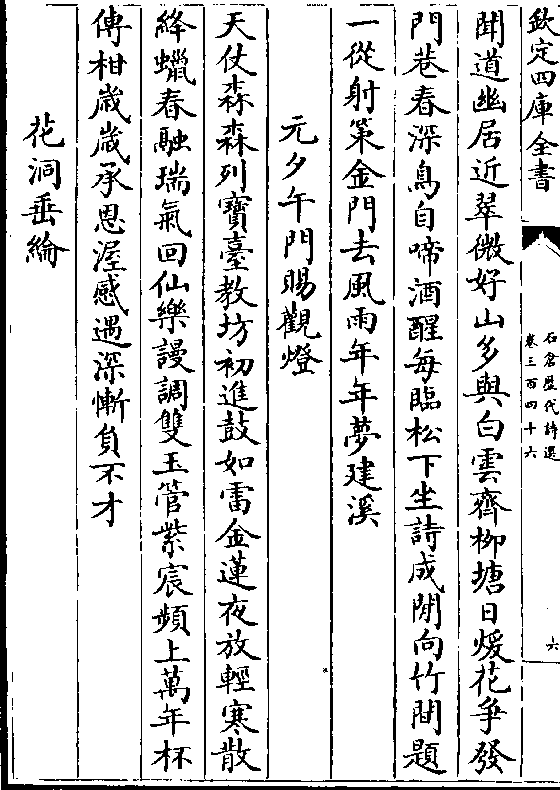 欽定四庫全書
石倉歷代詩選
卷三百四十六
六
聞道幽居近翠微好山多與白雲齊柳塘日煖花爭發
門巷春深鳥自啼酒醒每臨松下坐詩成閒向竹間題
一從射策金門去風雨年年夢建溪
元夕午門賜觀燈
天仗森森列寶臺教坊初進鼓如雷金蓮夜放輕寒散
絳蠟春融瑞氣回仙樂謾調雙玉管紫宸頻上萬年杯
傳柑歲歲承恩渥感遇深慚負不才
花洞垂綸